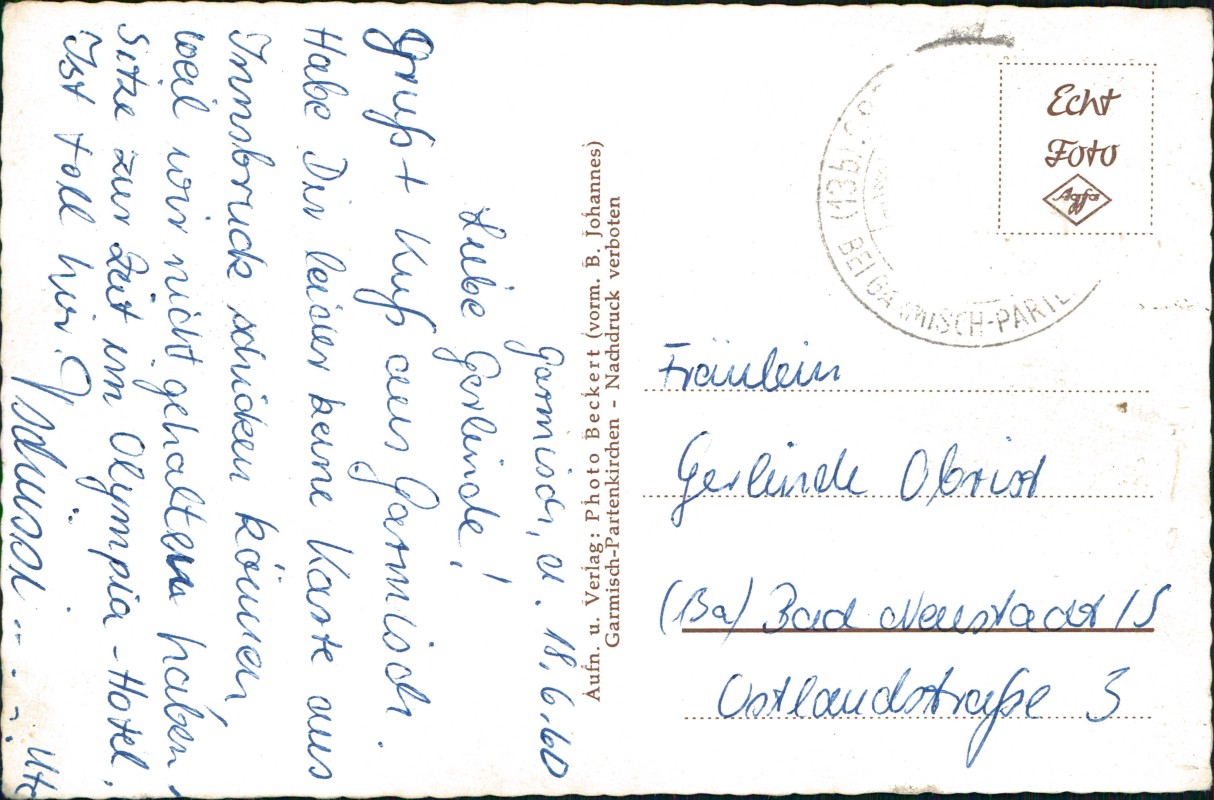 Garmisch, d. 18.6.60
Liebe Gerlinde!
Gruß + Kuß aus Garmisch.
Habe Dir leider keine Karte aus
Innsbruck schicken können
weil wir nicht gehalten haben,
Sitze zur Zeit im Olympia-Hotel,
Ist toll hier! Tschüssi...
Ute
Aufn. u. Verlag: Photo Beckert (vorm. B. Johannes)
Garmisch-Partenkirchen - Nachdruck verboten
Echt
Foto
Agfa
(13b)
BEI GARMISCH-PARTE
Fräulein
Gerlinde Obrist
(13a) Bad Neustadt/S
Ostlandstraße 3